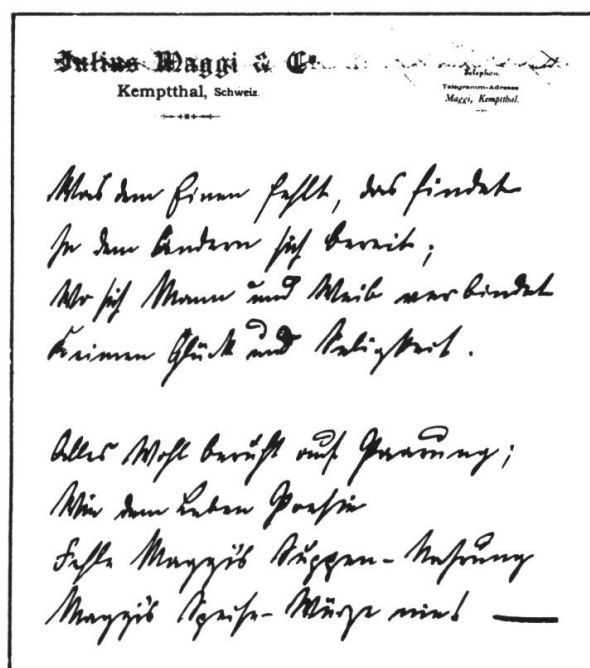 Julius Maggi & Cº
Kemptthal, Schweiz.
Telephon.
Telegramm-Adresse
Maggi, Kemptthal.
Was dem Einen fehlt, das findet
In dem Andern sich bereit;
Wo sich Mann und Weib verbindet
Keimen Glück und Seligkeit.
Alles Wohl beruht auf Paarung;
Wie dem Leben Poesie
Fehle Maggi's Suppen-Nahrung
Maggi's Speise-Würze nie!